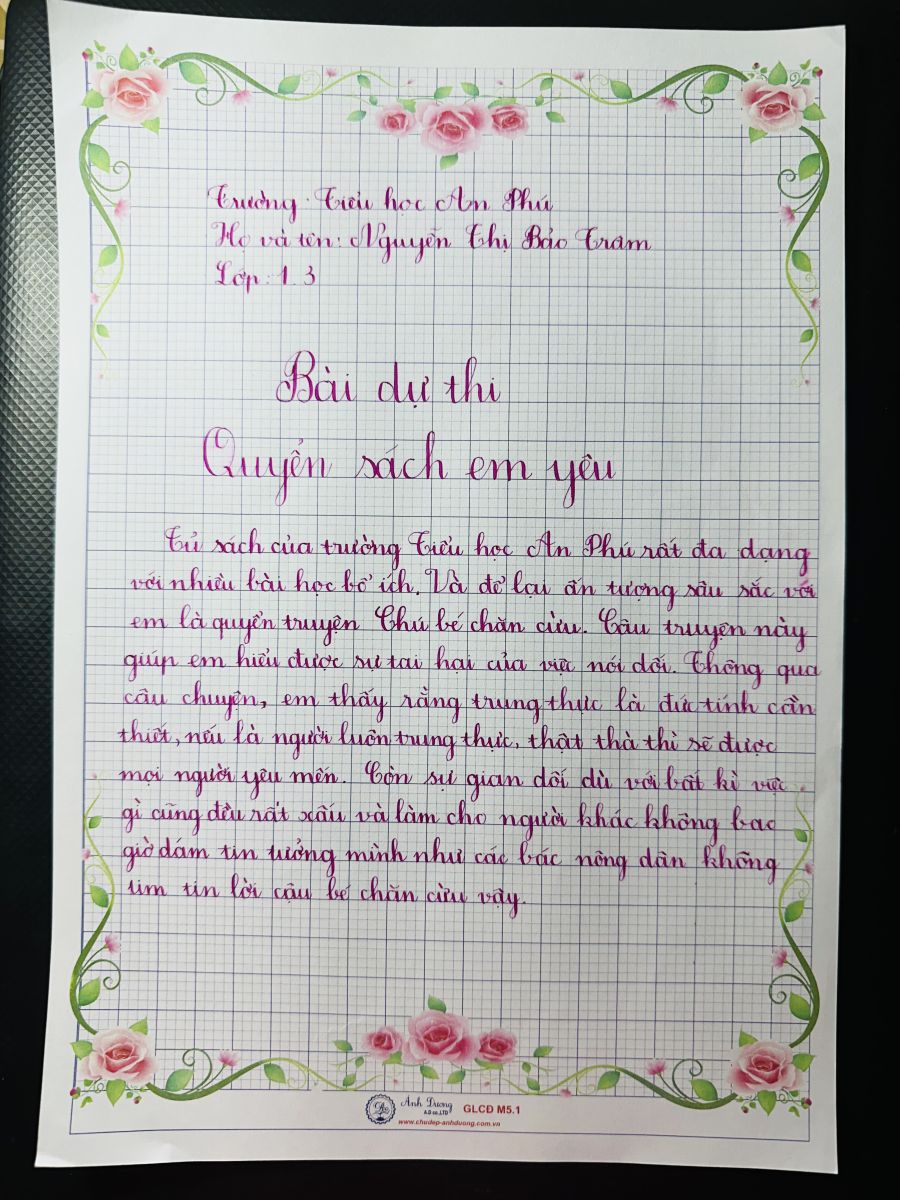 Trường: Tiểu học An Phú
Họ và tên: Nguyễn Thị Bảo Trâm
Lớp: 1.3
Bài dự thi
Quyển sách em yêu
Tủ sách của trường Tiểu học An Phú rất đa dạng
với nhiều bài học bổ ích. Và để lại ấn tượng sâu sắc với
em là quyển truyện Chú bé chăn cừu. Câu truyện này
giúp em hiểu được sự tai hại của việc nói dối. Thông qua
câu chuyện, em thấy rằng trung thực là đức tính cần
thiết, nếu là người luôn trung thực, thật thà thì sẽ được
mọi người yêu mến. Còn sự gian dối dù với bất kì việc
gì cũng đều rất xấu và làm cho người khác không bao
giờ dám tin tưởng mình như các bác nông dân không
tin lời cậu bé chăn cừu vậy.
Ánh Dương
A.D co.,LTD
GLCD M5.1
www.chudep-anhduong.com.vn